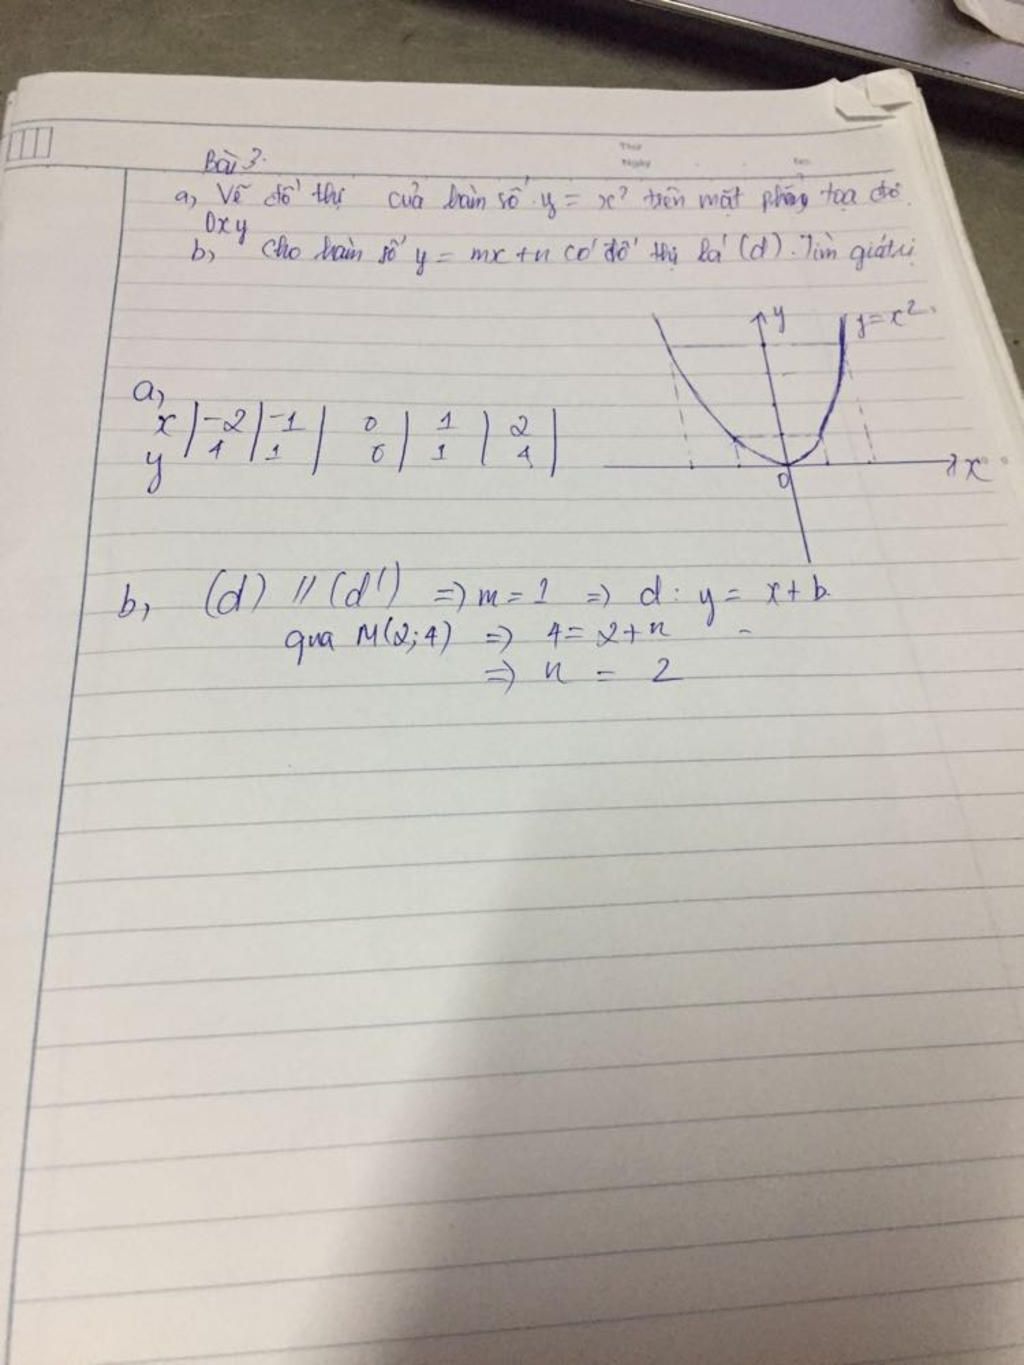 Thứ
Ngày
No.
Bài 3.
a, Vẽ đồ thị của hàm số y = x² trên mặt phẳng tọa độ
Oxy
b, Cho hàm số y = mx + n có đồ thị là (d). Tìm giá trị
y
y = x²
a,
x | -2 | -1 | 0 | 1 | 2 |
y 4 | 1 | 0 | 1 | 4
x
0
b, (d) // (d') => m = 1 => d: y = x + b.
qua M(2;4) => 4 = 2 + n
=> n = 2